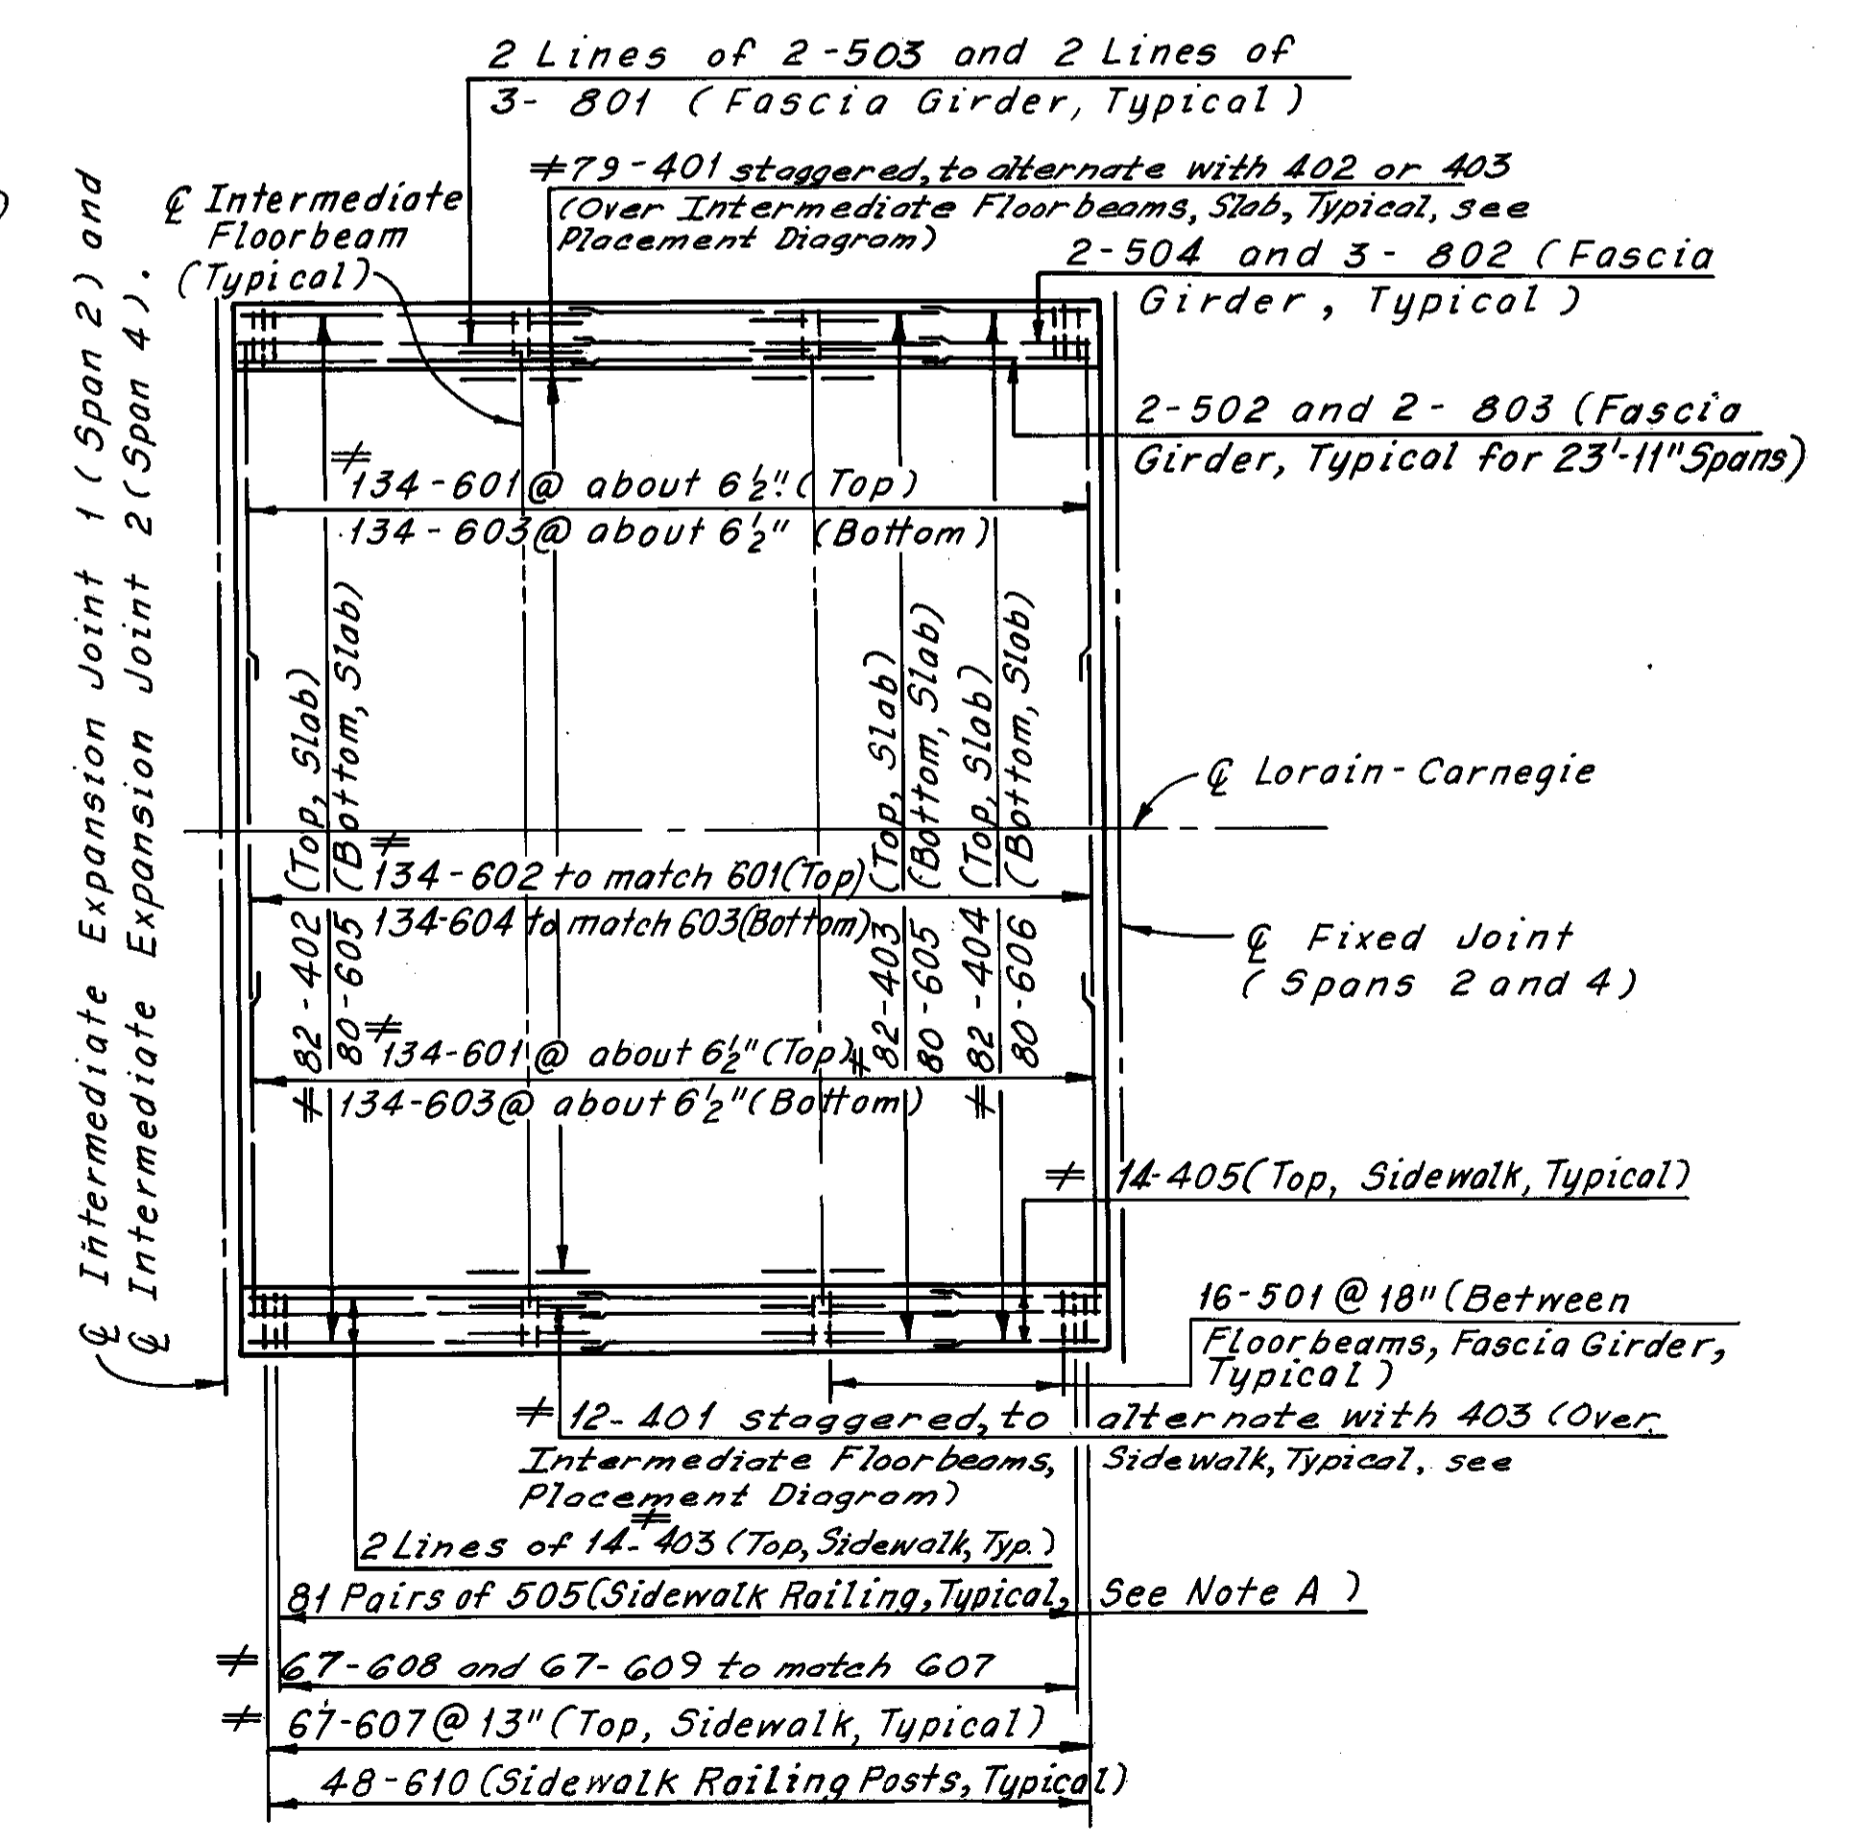 2 Lines of 2-503 and 2 Lines of
3- 801 (Fascia Girder, Typical)
≠79-401 staggered, to alternate with 402 or 403
(Over Intermediate Floorbeams, Slab, Typical, see
Placement Diagram)
℄ Intermediate
Floorbeam
(Typical)
2-504 and 3- 802 (Fascia
Girder, Typical)
2-502 and 2- 803 (Fascia
Girder, Typical for 23'-11" Spans)
℄ Intermediate Expansion Joint 1 (Span 2) and
℄ Intermediate Expansion Joint 2 (Span 4).
≠
134-601@ about 6½" (Top)
134-603@ about 6½" (Bottom)
≠ 82-402 (Top, Slab)
80-605 (Bottom, Slab)
≠ 82-403 (Top, Slab)
80-605 (Bottom, Slab)
≠ 82-404 (Top, Slab)
80-606 (Bottom, Slab)
℄ Lorain-Carnegie
≠
134-602 to match 601(Top)
134-604 to match 603(Bottom)
℄ Fixed Joint
(Spans 2 and 4)
≠
134-601@ about 6½" (Top)
134-603@ about 6½" (Bottom)
≠ 14-405(Top, Sidewalk, Typical)
16-501 @ 18" (Between
Floorbeams, Fascia Girder,
Typical)
≠ 12-401 staggered, to alternate with 403 (Over
Intermediate Floorbeams, Sidewalk, Typical, see
Placement Diagram)
2 Lines of 14-≠403 (Top, Sidewalk, Typ.)
81 Pairs of 505(Sidewalk Railing, Typical, See Note A)
≠ 67-608 and 67-609 to match 607
≠ 67-607@ 13" (Top, Sidewalk, Typical)
48-610 (Sidewalk Railing Posts, Typical)